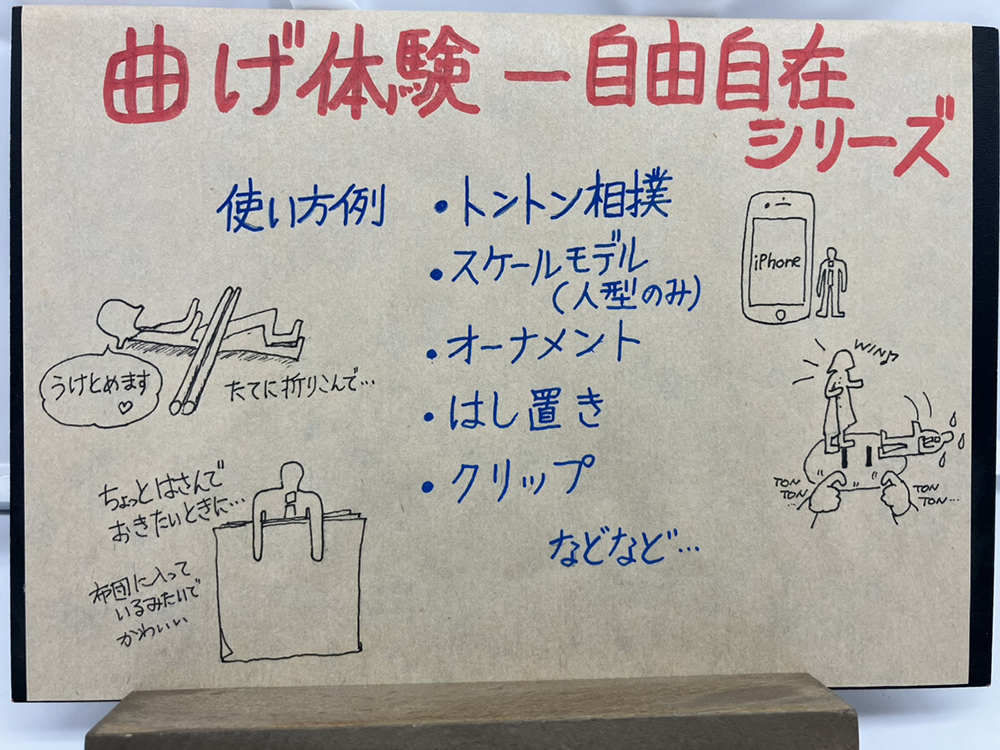 曲げ体験ー自由自在
シリーズ
使い方例
・トントン相撲
・スケールモデル
(人型のみ)
・オーナメント
・はし置き
・クリップ
などなど…
iPhone
WIN♪
TON
TON…
TON
TON…
うけとめます
♡
たてに折りこんで…
ちょっとはさんで
おきたいときに…
布団に入って
いるみたいで
かわいい